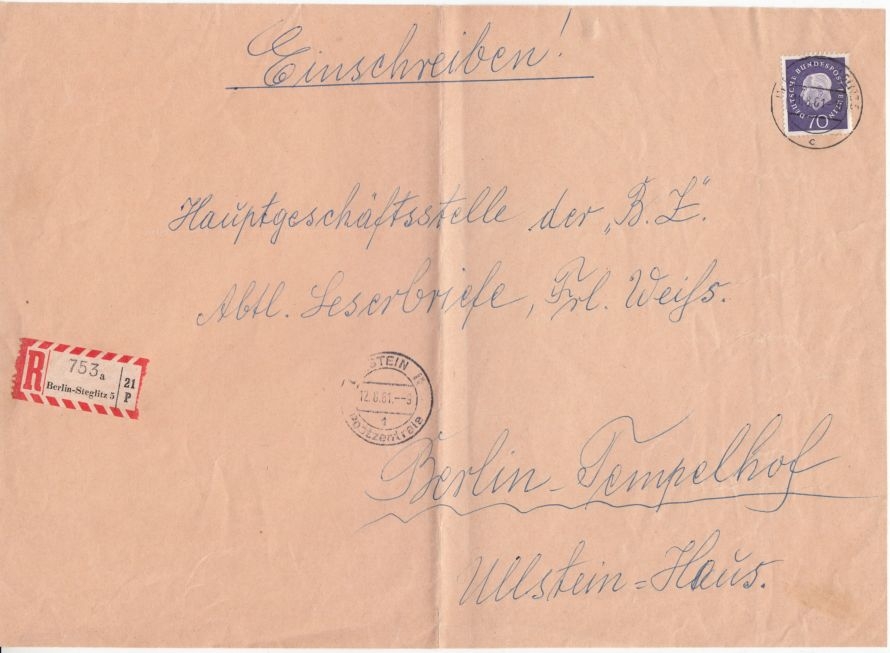 Einschreiben!
DEUTSCHE BUNDESPOST BERLIN
70
c
Hauptgeschäftsstelle der „B.Z".
Abtl. Leserbriefe, Frl. Weiss.
R
753a
Berlin-Steglitz 5
21
P
12.6.61.--9
1
Postzentrale
Berlin-Tempelhof
Ullstein=Haus.